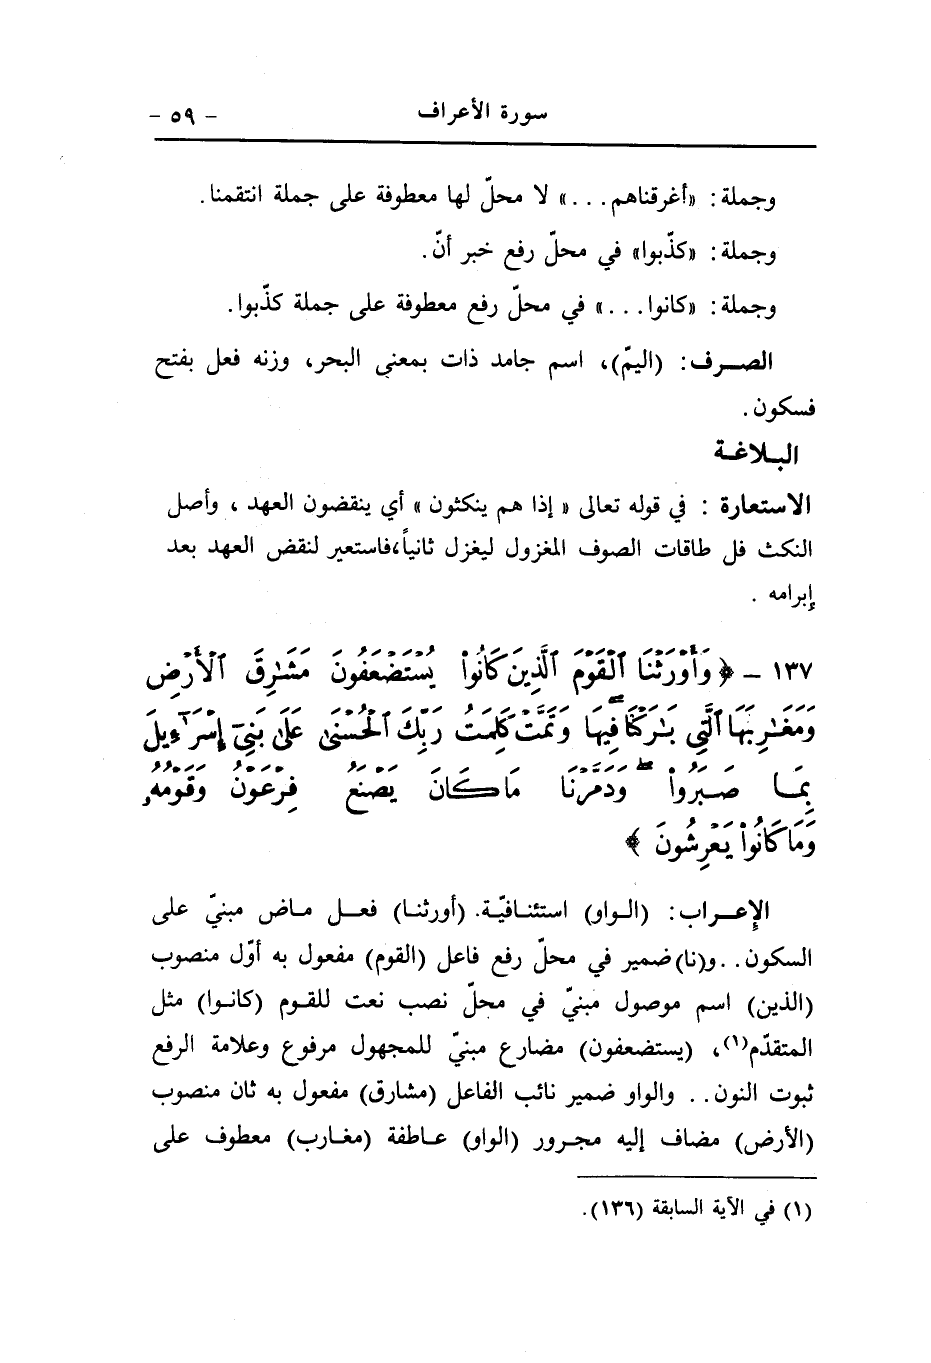 سورة الأعراف - ٥٩ -
وجملة: «أغرقناهم...» لا محلّ لها معطوفة على جملة انتقمنا.
وجملة: «كذّبوا» في محلّ رفع خبر أنّ.
وجملة: «كانوا...» في محلّ رفع معطوفة على جملة كذّبوا.
الصرف: (اليمّ)، اسم جامد ذات بمعنى البحر، وزنه فعل بفتح
فسكون.
البلاغة
الاستعارة : في قوله تعالى « إذا هم ينكثون » أي ينقضون العهد ، وأصل
النكث فل طاقات الصوف المغزول ليغزل ثانياً،فاستعير لنقض العهد بعد
إبرامه .
١٣٧ - ﴿ وَأَوْرَثْنَا ٱلْقَوْمَ ٱلَّذِينَ كَانُوا۟ يُسْتَضْعَفُونَ مَشَـٰرِقَ ٱلْأَرْضِ
وَمَغَـٰرِبَهَا ٱلَّتِي بَـٰرَكْنَا فِيهَا ۖ وَتَمَّتْ كَلِمَتُ رَبِّكَ ٱلْحُسْنَىٰ عَلَىٰ بَنِىٓ إِسْرَٰٓءِيلَ
بِمَا صَبَرُوا۟ ۖ وَدَمَّرْنَا مَا كَانَ يَصْنَعُ فِرْعَوْنُ وَقَوْمُهُۥ
وَمَا كَانُوا۟ يَعْرِشُونَ ﴾
الإعراب: (الواو) استئنافيّة. (أورثنا) فعل ماض مبنيّ على
السكون.. و(نا) ضمير في محلّ رفع فاعل (القوم) مفعول به أوّل منصوب
(الذين) اسم موصول مبنيّ في محلّ نصب نعت للقوم (كانوا) مثل
المتقدّم(١)، (يستضعفون) مضارع مبنيّ للمجهول مرفوع وعلامة الرفع
ثبوت النون.. والواو ضمير نائب الفاعل (مشارق) مفعول به ثان منصوب
(الأرض) مضاف إليه مجرور (الواو) عاطفة (مغارب) معطوف على
(١) في الآية السابقة (١٣٦).